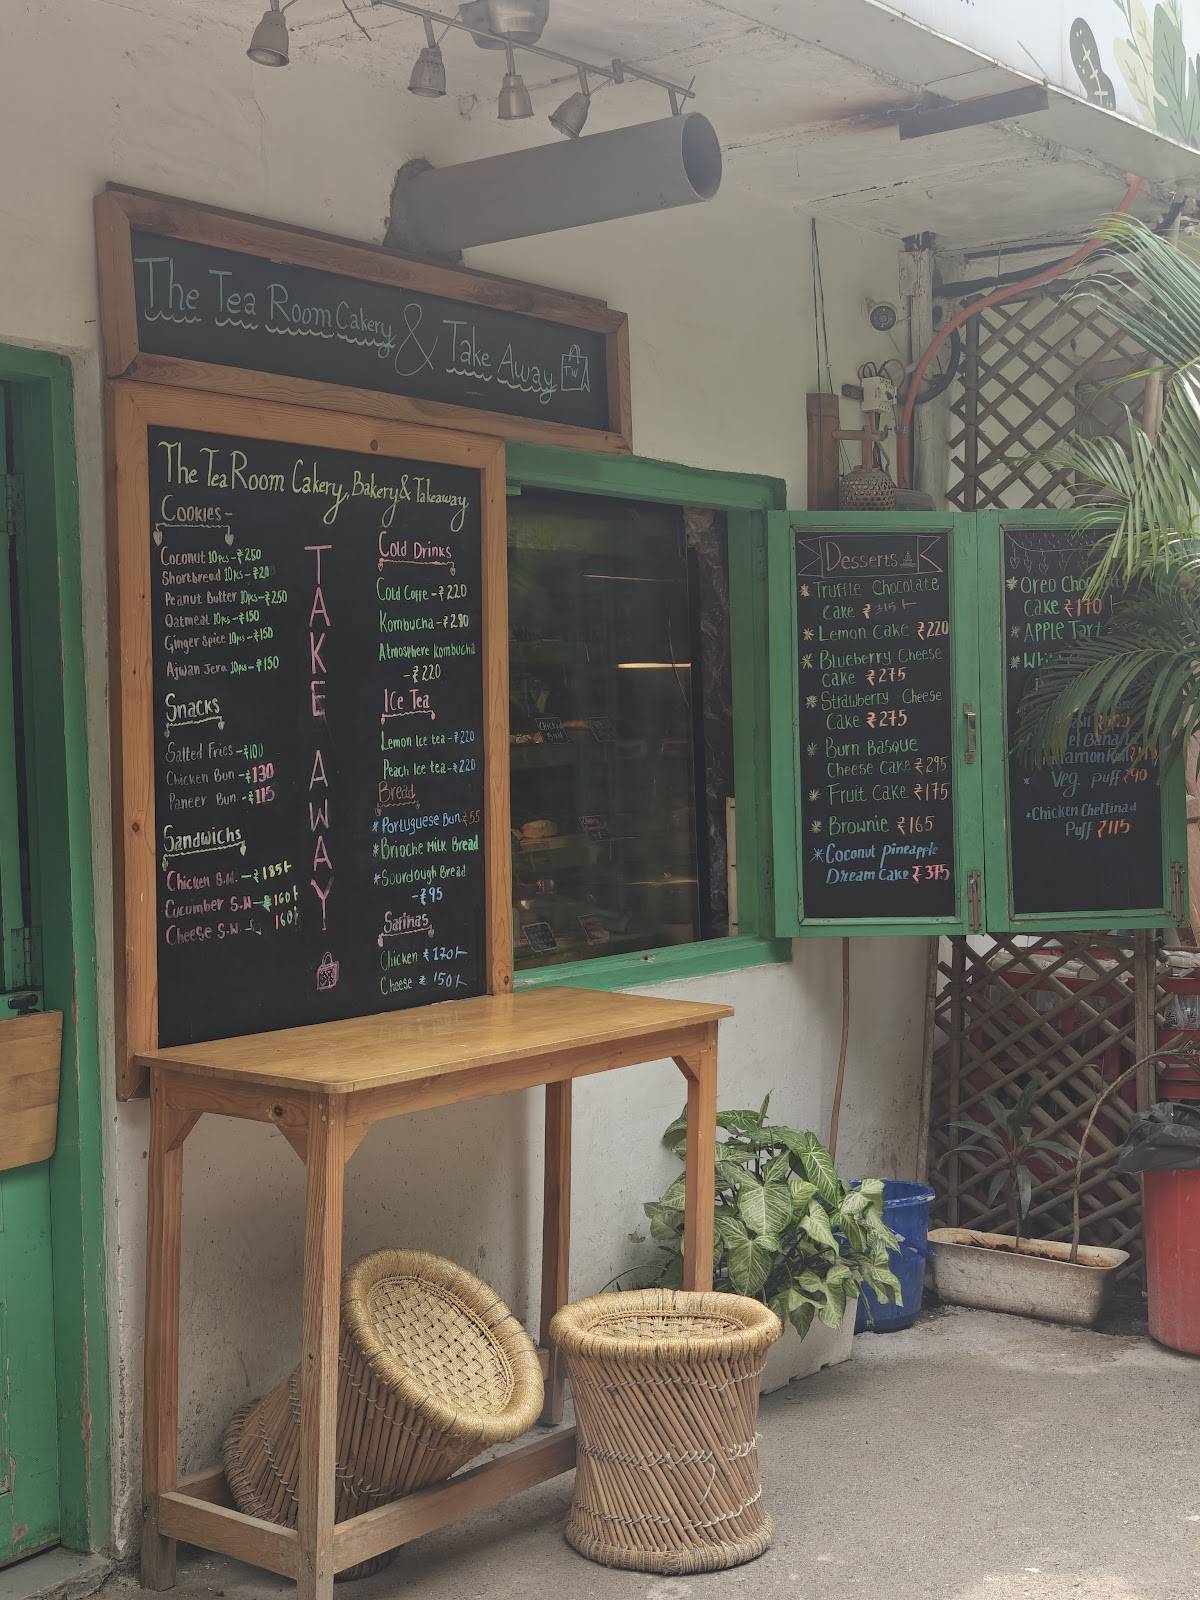 The Tea Room Cakery & Take Away
TWA
The Tea Room Cakery, Bakery & Takeaway
Cookies-
Coconut 10pcs-₹250
Shortbread 10pcs-₹20
Peanut Butter 10pcs-₹250
Oatmeal 10pcs-₹150
Ginger Spice 10pcs-₹150
Ajwan Jera 10pcs-₹150
Snacks
Salted Fries-₹100
Chicken Bun-₹130
Paneer Bun-₹115
Sandwichs
Chicken S.W.-₹185/-
Cucumber S.W-₹160/-
Cheese S.W- 160/-
TAKE AWAY
Cold Drinks
Cold Coffe-₹220
Kombucha-₹280
Atmosphere Kombucha
-₹220
Ice Tea
Lemon Ice tea-₹220
Peach Ice tea-₹220
Bread
*Portuguese Bun ₹55
*Brioche Milk Bread
*Sourdough Bread
-₹95
Safinas
Chicken ₹170/-
Cheese ₹150/-
Desserts
Truffle Chocolate
Cake ₹315/-
Lemon Cake ₹220
Blueberry Cheese
Cake ₹275
Strawberry Cheese
Cake ₹275
Burn Basque
Cheese Cake ₹295
Fruit Cake ₹175
Brownie ₹165
Coconut Pineapple
Dream Cake ₹375
Oreo
Cake ₹170
APPLE Tart
Banana
Veg. Puff ₹90
Chicken Chettinad
Puff ₹115